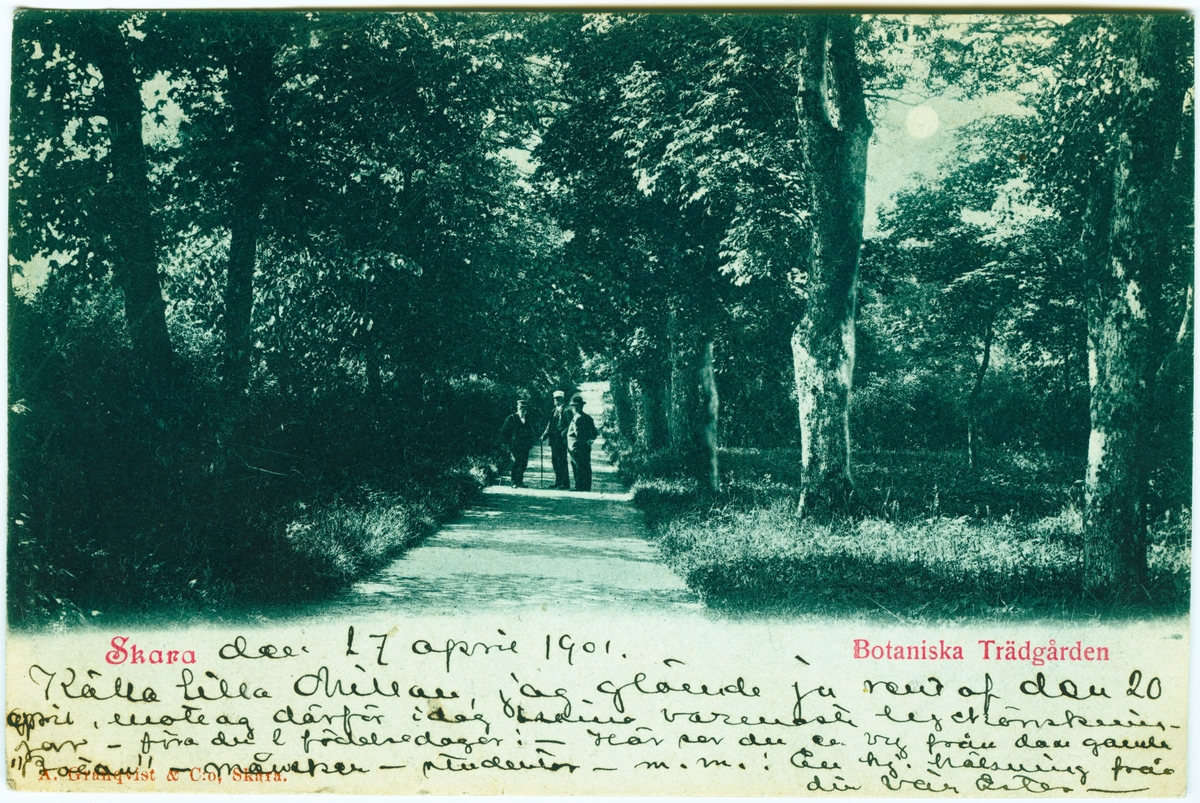 Skara den 27 april 1901. Botaniska Trädgården
Kära lilla Millan, jag glömde ju rent af den 20
april, mottag därför idag mina varmaste lyckönsknin-
gar – födelsedagar! – Här ser du en vy från den gamla
"Botan" – månsken – studenter – m.m. : En hj. hälsning från
A. Granqvist & C:o, Skara.
din vän Ester –